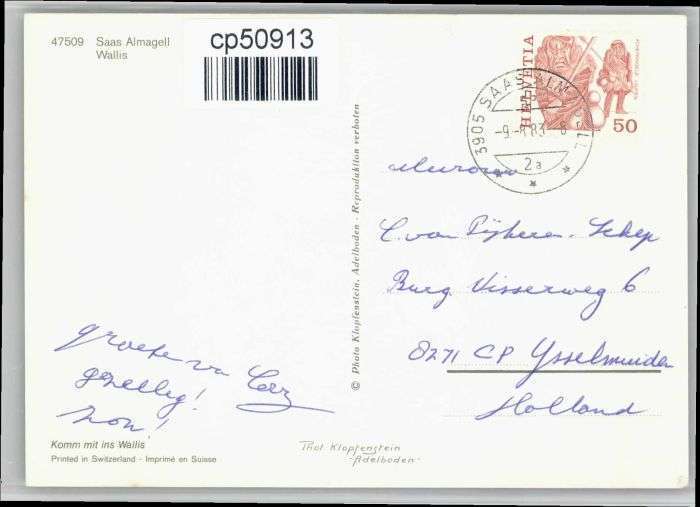 47509 Saas Almagell
Wallis
cp50913
HELVETIA
50
3905 SAAS-ALMAGELL
-9.-1.83. 8
2a
Mevrouw
C. van Pijkeren-Schep
Burg. Visserweg 6
8271 CP Ysselmuiden
Holland
groetjes van Corz
gezellig!
zon!
© Photo Klopfenstein, Adelboden - Reproduktion verboten
Komm mit ins Wallis
Printed in Switzerland - Imprimé en Suisse
Phot Klopfenstein
-Adelboden-